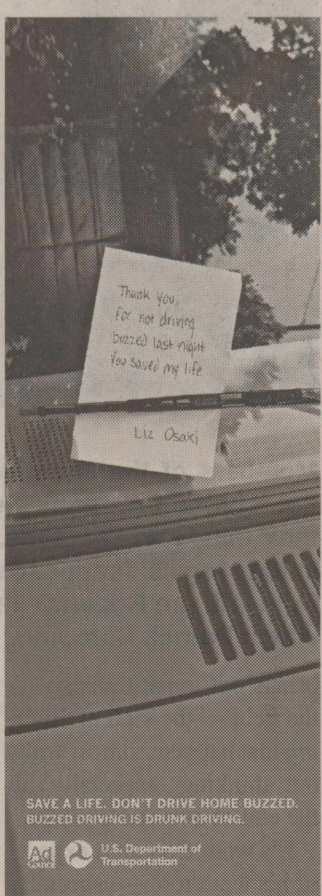 Thank you,
for not driving
buzzed last night
You saved my life
Liz Osaki
SAVE A LIFE. DON'T DRIVE HOME BUZZED.
BUZZED DRIVING IS DRUNK DRIVING.
Ad
Council
U.S. Department of
Transportation